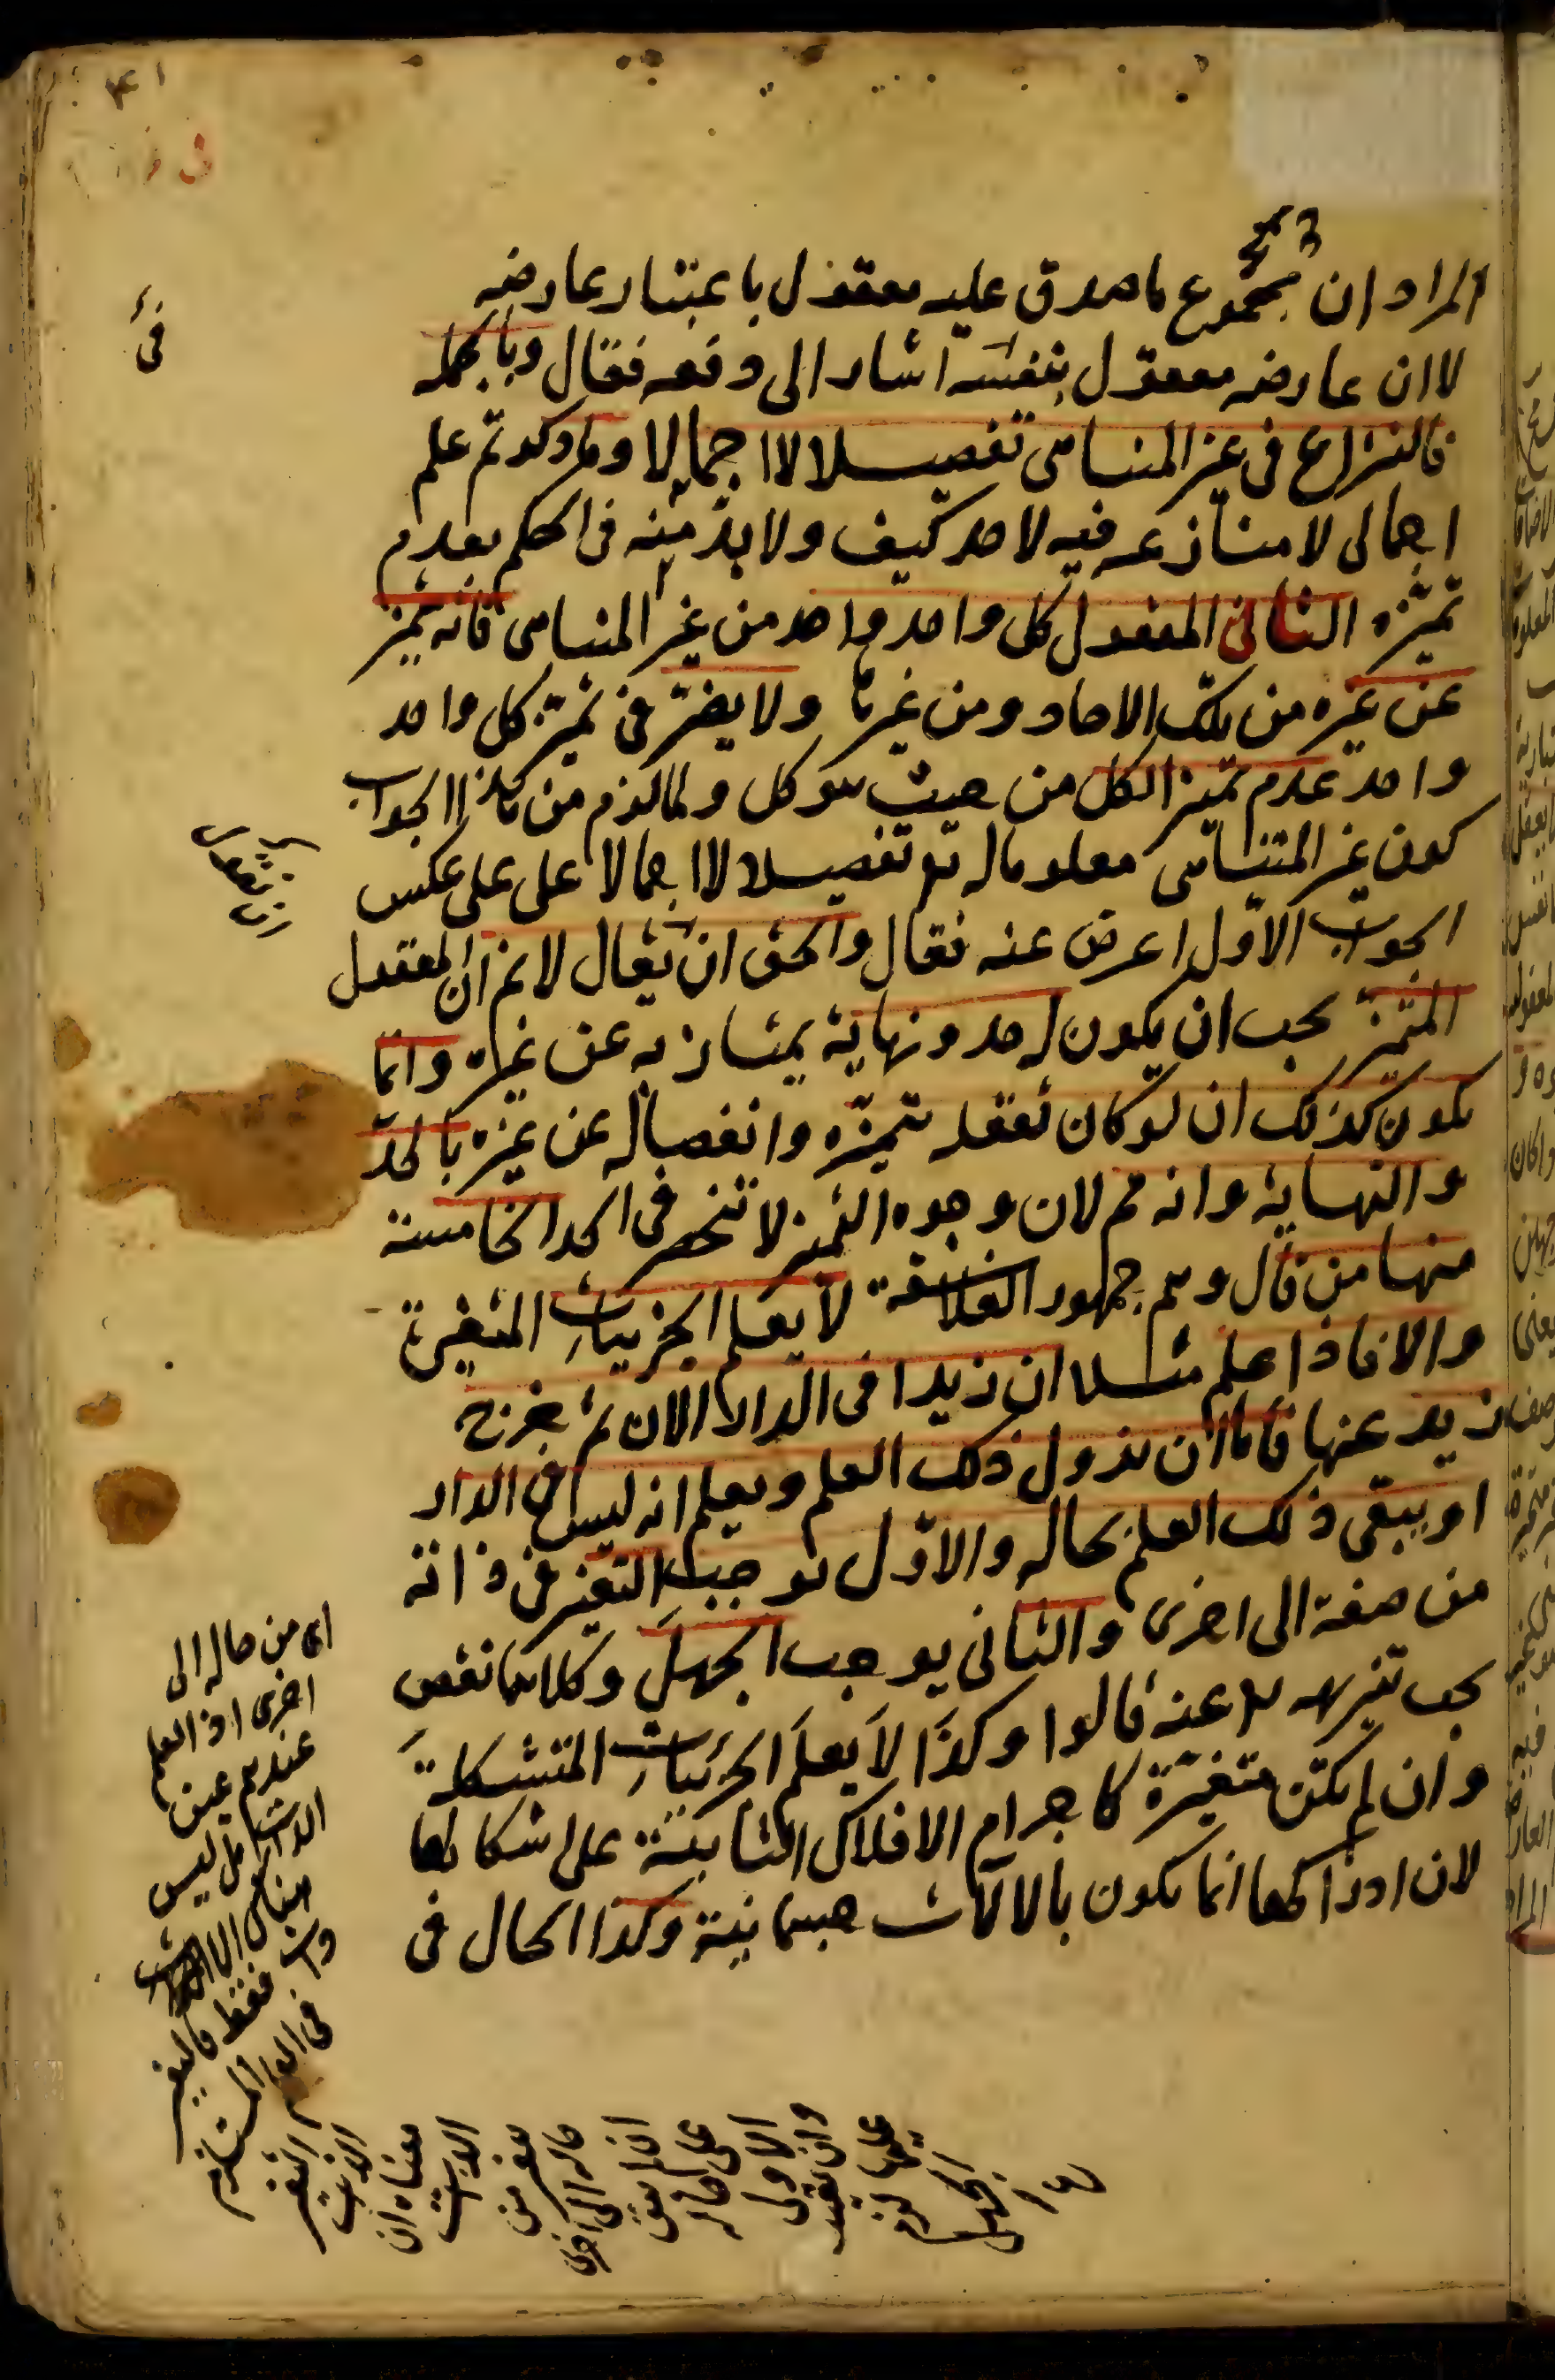 المراد ان مجموع ما صدق عليه معقول باعتبار عارضه
لا ان عارضه معقول بنفسه اشار الى دفعه فقال وبالجملة
فالنزاع فى غير المتناهى تفصيلا لا اجمالا وما ذكرتم علم
اجمالى لا منازعه فيه لاحد كيف ولا بد منه فى الحكم بعدم
تميزه الثانى المعقول كل واحد واحد من غير المتناهى فانه تميز
عن غيره من تلك الاحاد ومن غيرها ولا يضر فى تميز كل واحد
واحد عدم تميز الكل من حيث هو كل ولما لزم من هذا الجواب
كون غير المتناهى معلوما له تع تفصيلا لا اجمالا على على عكس
الجواب الاول اعرض عنه فقال والحق ان يقال لا نم ان المعقول
المتميز يجب ان يكون له حد ونهاية يمتاز به عن غيره وانما
يكون كذلك ان لو كان تعقله بتميزه وانفصاله عن غيره بالحد
والنهاية وانه مم لان وجوه التميز لا تنحصر فى الحد الخامسة
منها من قال وهم جمهور الفلاسفة لا يعلم الجزئيات المتغيرة
والا فاذا علم مثلا ان زيدا فى الدار الان ثم خرج
زيد عنها فاما ان يزول ذلك العلم ويعلم انه ليس فى الدار
او يبقى ذلك العلم بحاله والاول يوجب التغير فى ذاته
من صفة الى اخرى والثانى يوجب الجهل وكلاهما نقص
يجب تنزيهه تع عنه قالوا وكذا لا يعلم الجزئيات المتشكلة
وان لم يكن متغيرة كاجرام الافلاك الثابتة على اشكالها
لان ادراكها انما يكون بالالات جسمانية وكذا الحال فى
اى من حاله الى
اخرى اذ العلم
عندهم عين
الذات بل ليس
هناك الا
فقط فالتغير
فى العلم المستلزم
التغير
الذات
معناه ان
الذات
تغير من
حاله الى اخرى
اذا بقى
على حاله
الاول
وان تغير
الجهل